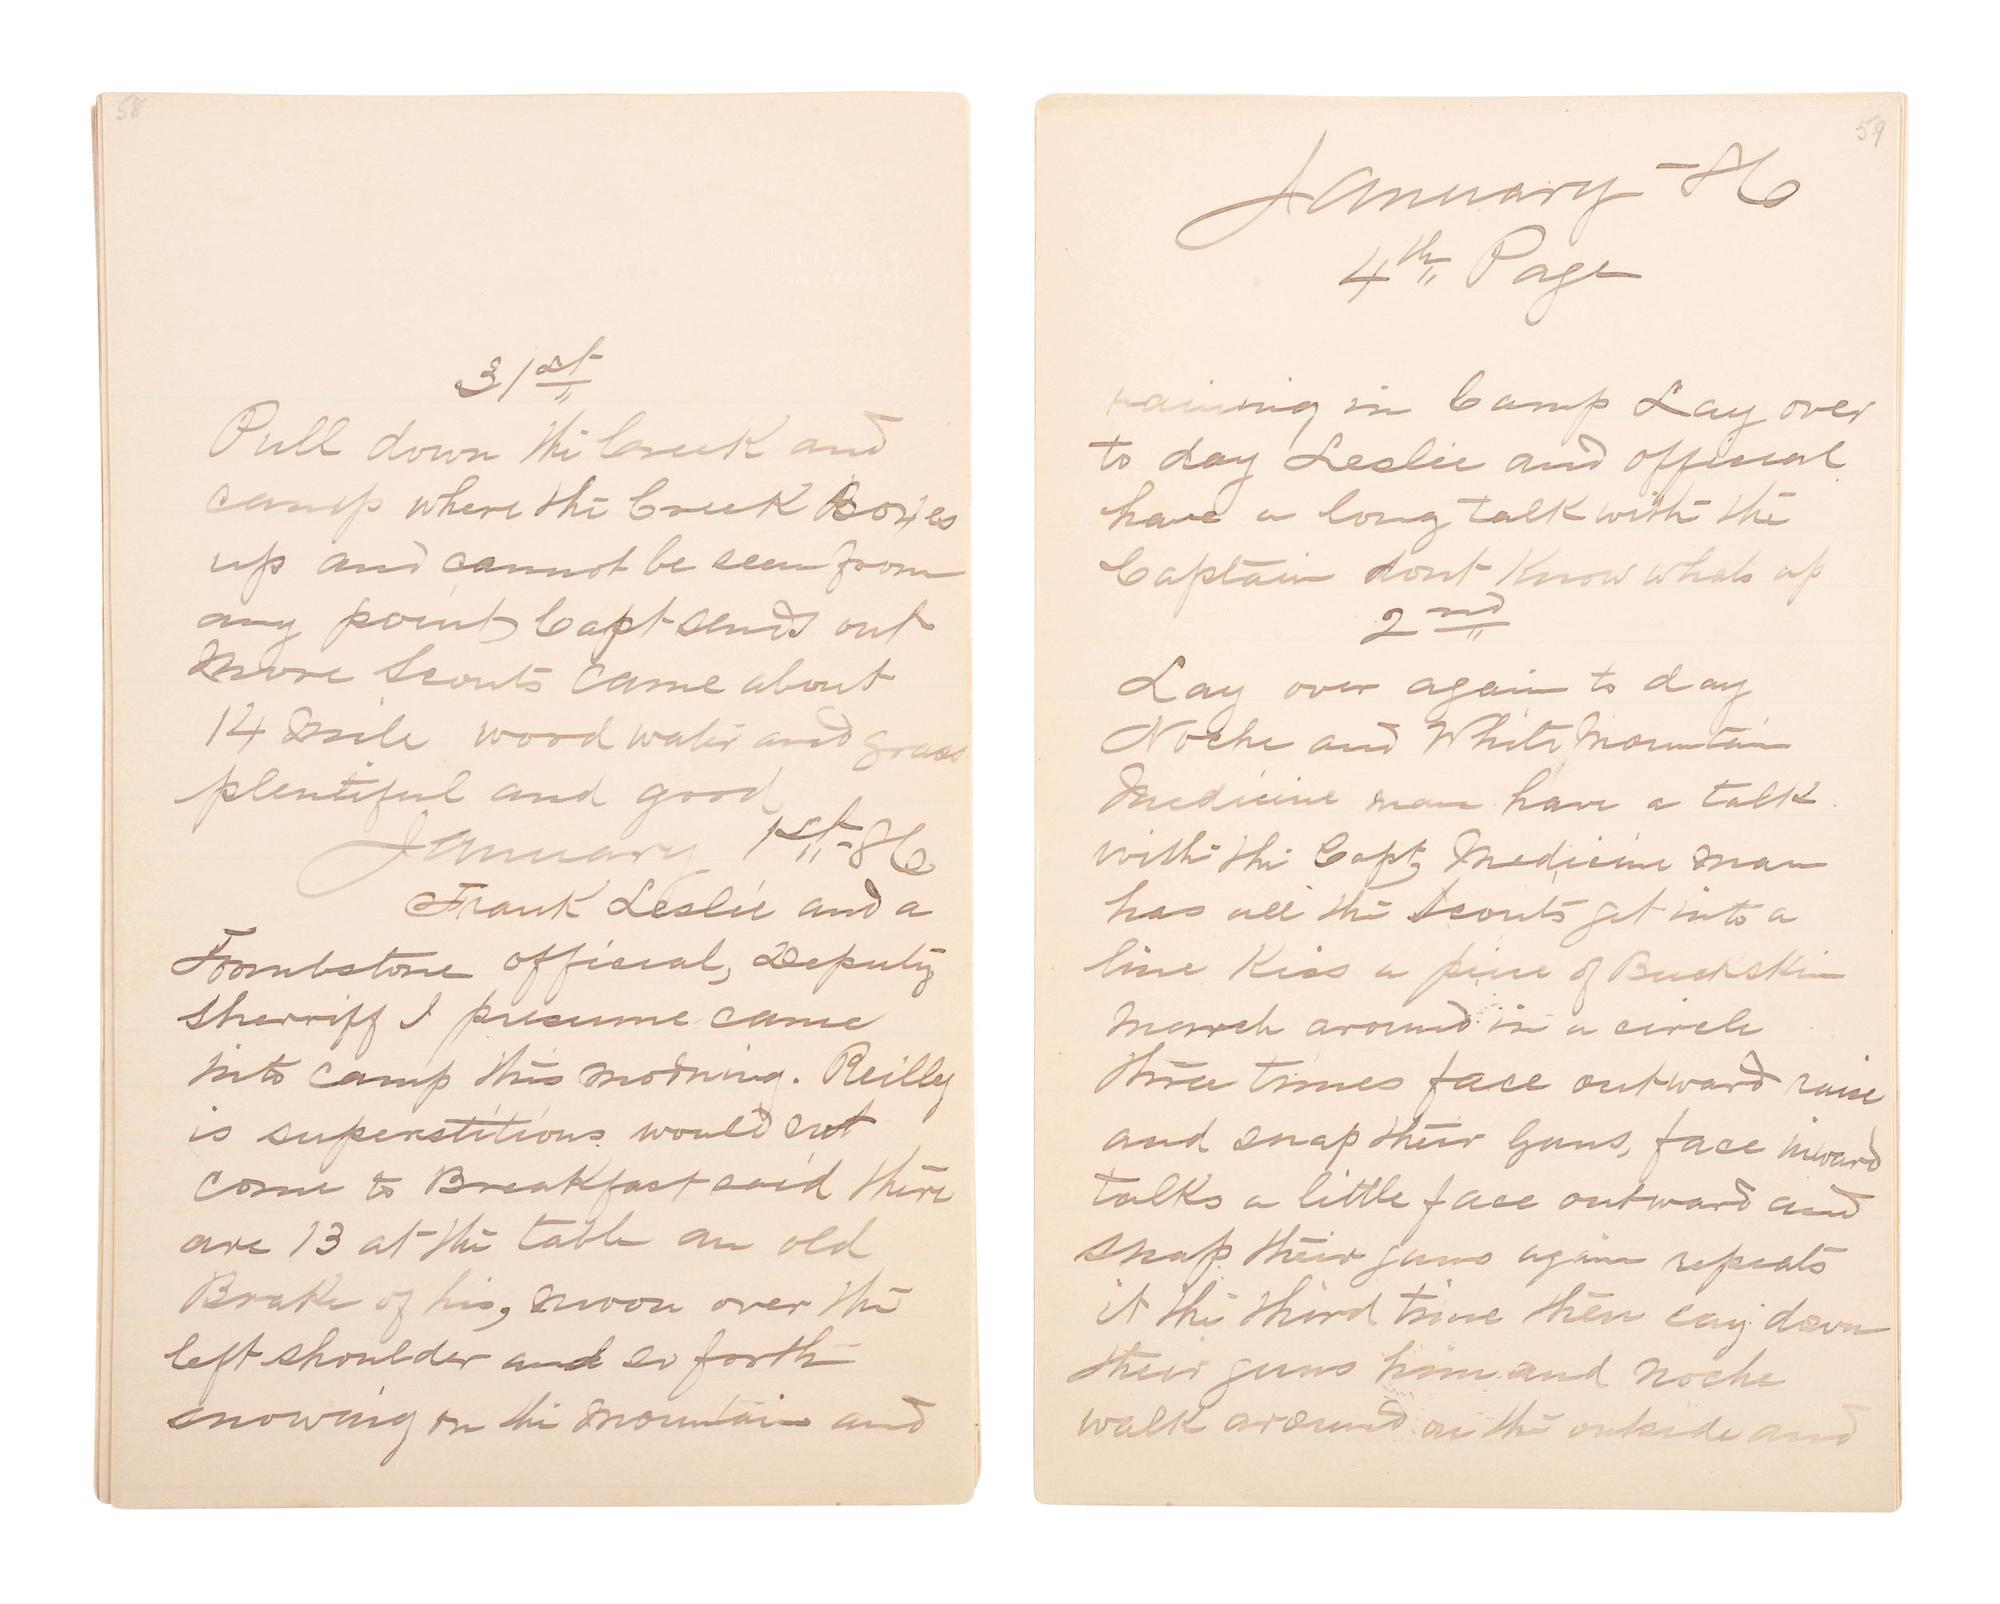 58
31st
Pull down the Creek and
camp where the Creek Boxes
up and cannot be seen from
any point, Capt sends out
More Scouts came about
14 mile wood water and grass
plentiful and good
January 1st-86
Frank Leslie and a
Tombstone official, Deputy
Sherriff I presume came
into camp this morning. Reilly
is superstitious would not
come to Breakfast said there
are 13 at the table an old
Brake of his, moon over the
left shoulder and so forth
snowing on the mountain and
59
January -86
4th Page
raining in Camp Lay over
to day Leslie and official
have a long talk with the
Captain dont Know whats up
2nd
Lay over again to day
Noche and White Mountain
Medicine man have a talk
with the Capt, Medicine man
has all the Scouts get into a
line Kiss a piece of Buckskin
March around in a circle
three times face outward raise
and snap their Guns, face inward
talks a little face outward and
snap their guns again repeats
it the third time then lay down
their guns him and Noche
walk around on the outside and